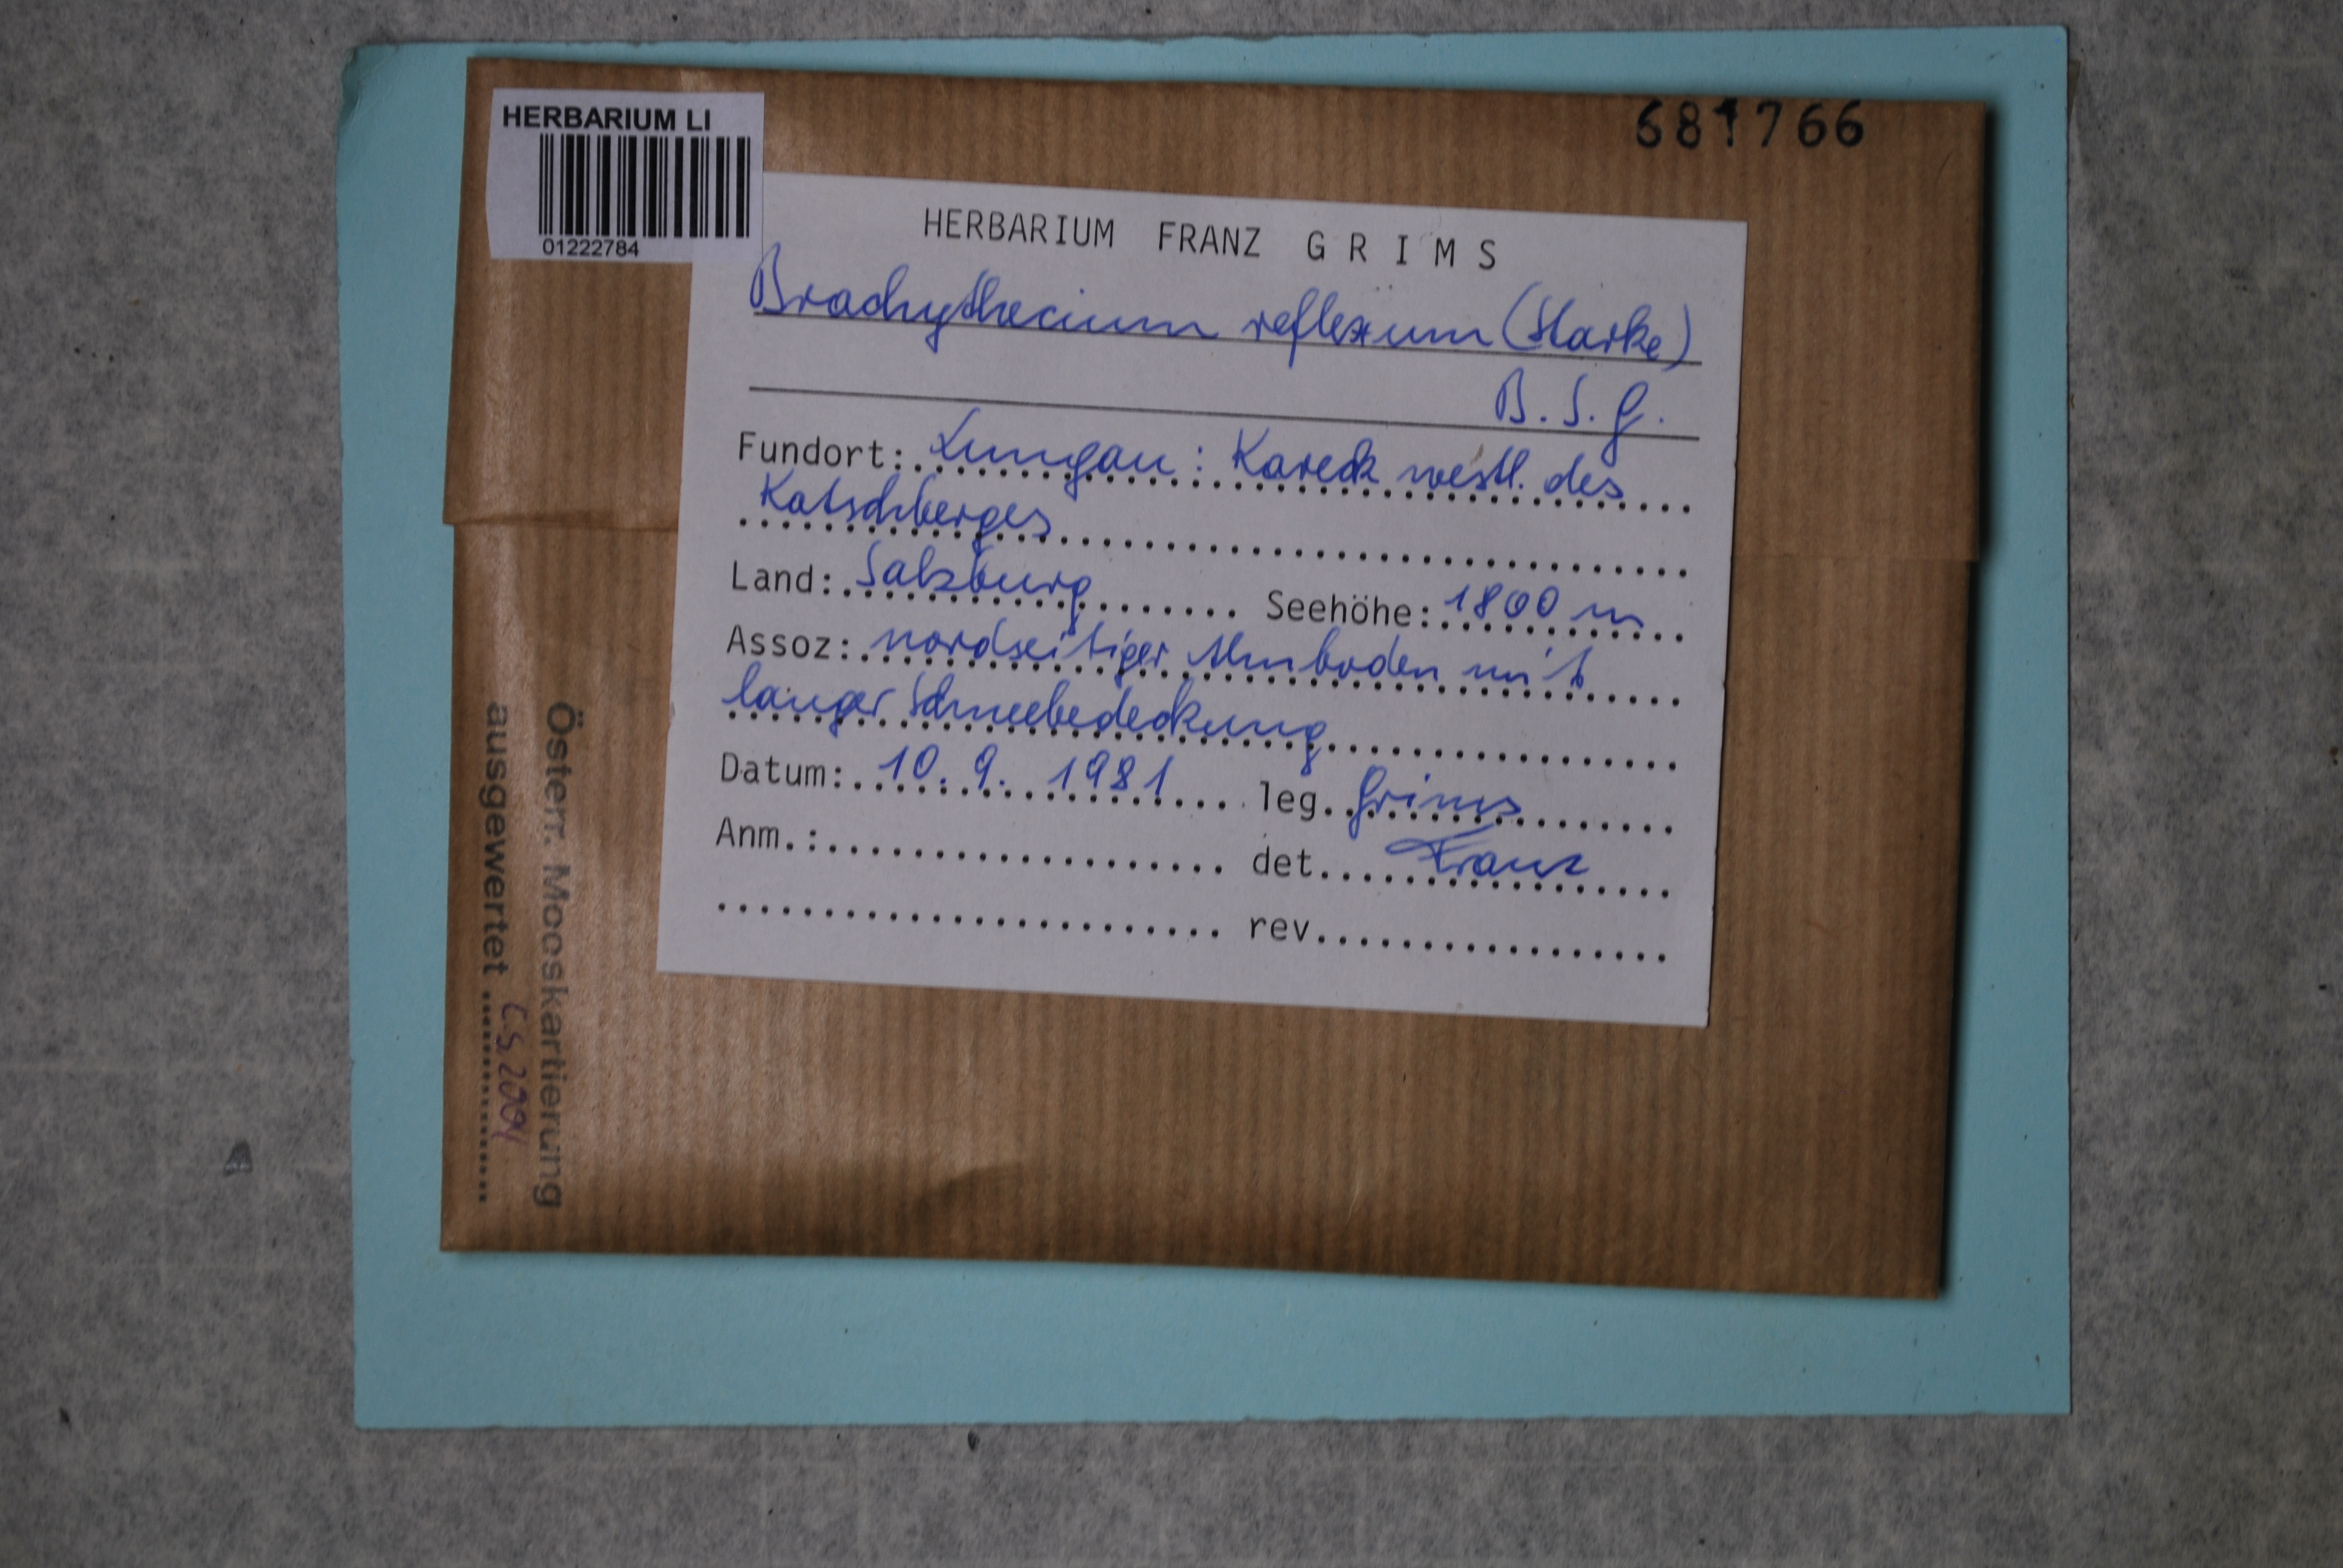 HERBARIUM LI
01222784
681766
HERBARIUM FRANZ GRIMS
Brachythecium reflexum (Starke)
B.S.G.
Fundort: Lungau: Kareck westl. des
Katschberges
Land: Salzburg Seehöhe: 1800 m
Assoz: nordseitiger Almboden mit
langer Schneebedeckung
Datum: 10.9.1981 leg. Grims
Anm.: det. Franz
rev.
Österr. Mooskartierung
ausgewertet CS 2004